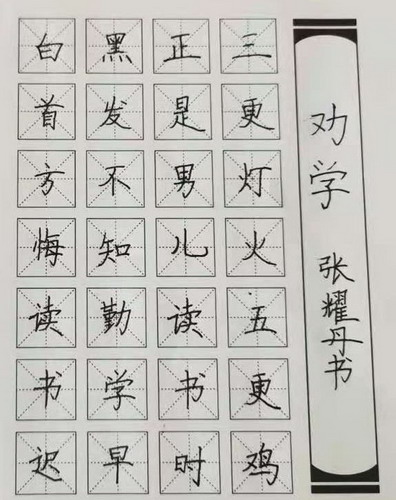 劝学
张耀丹书
三更灯火五更鸡
正是男儿读书时
黑发不知勤学早
白首方悔读书迟